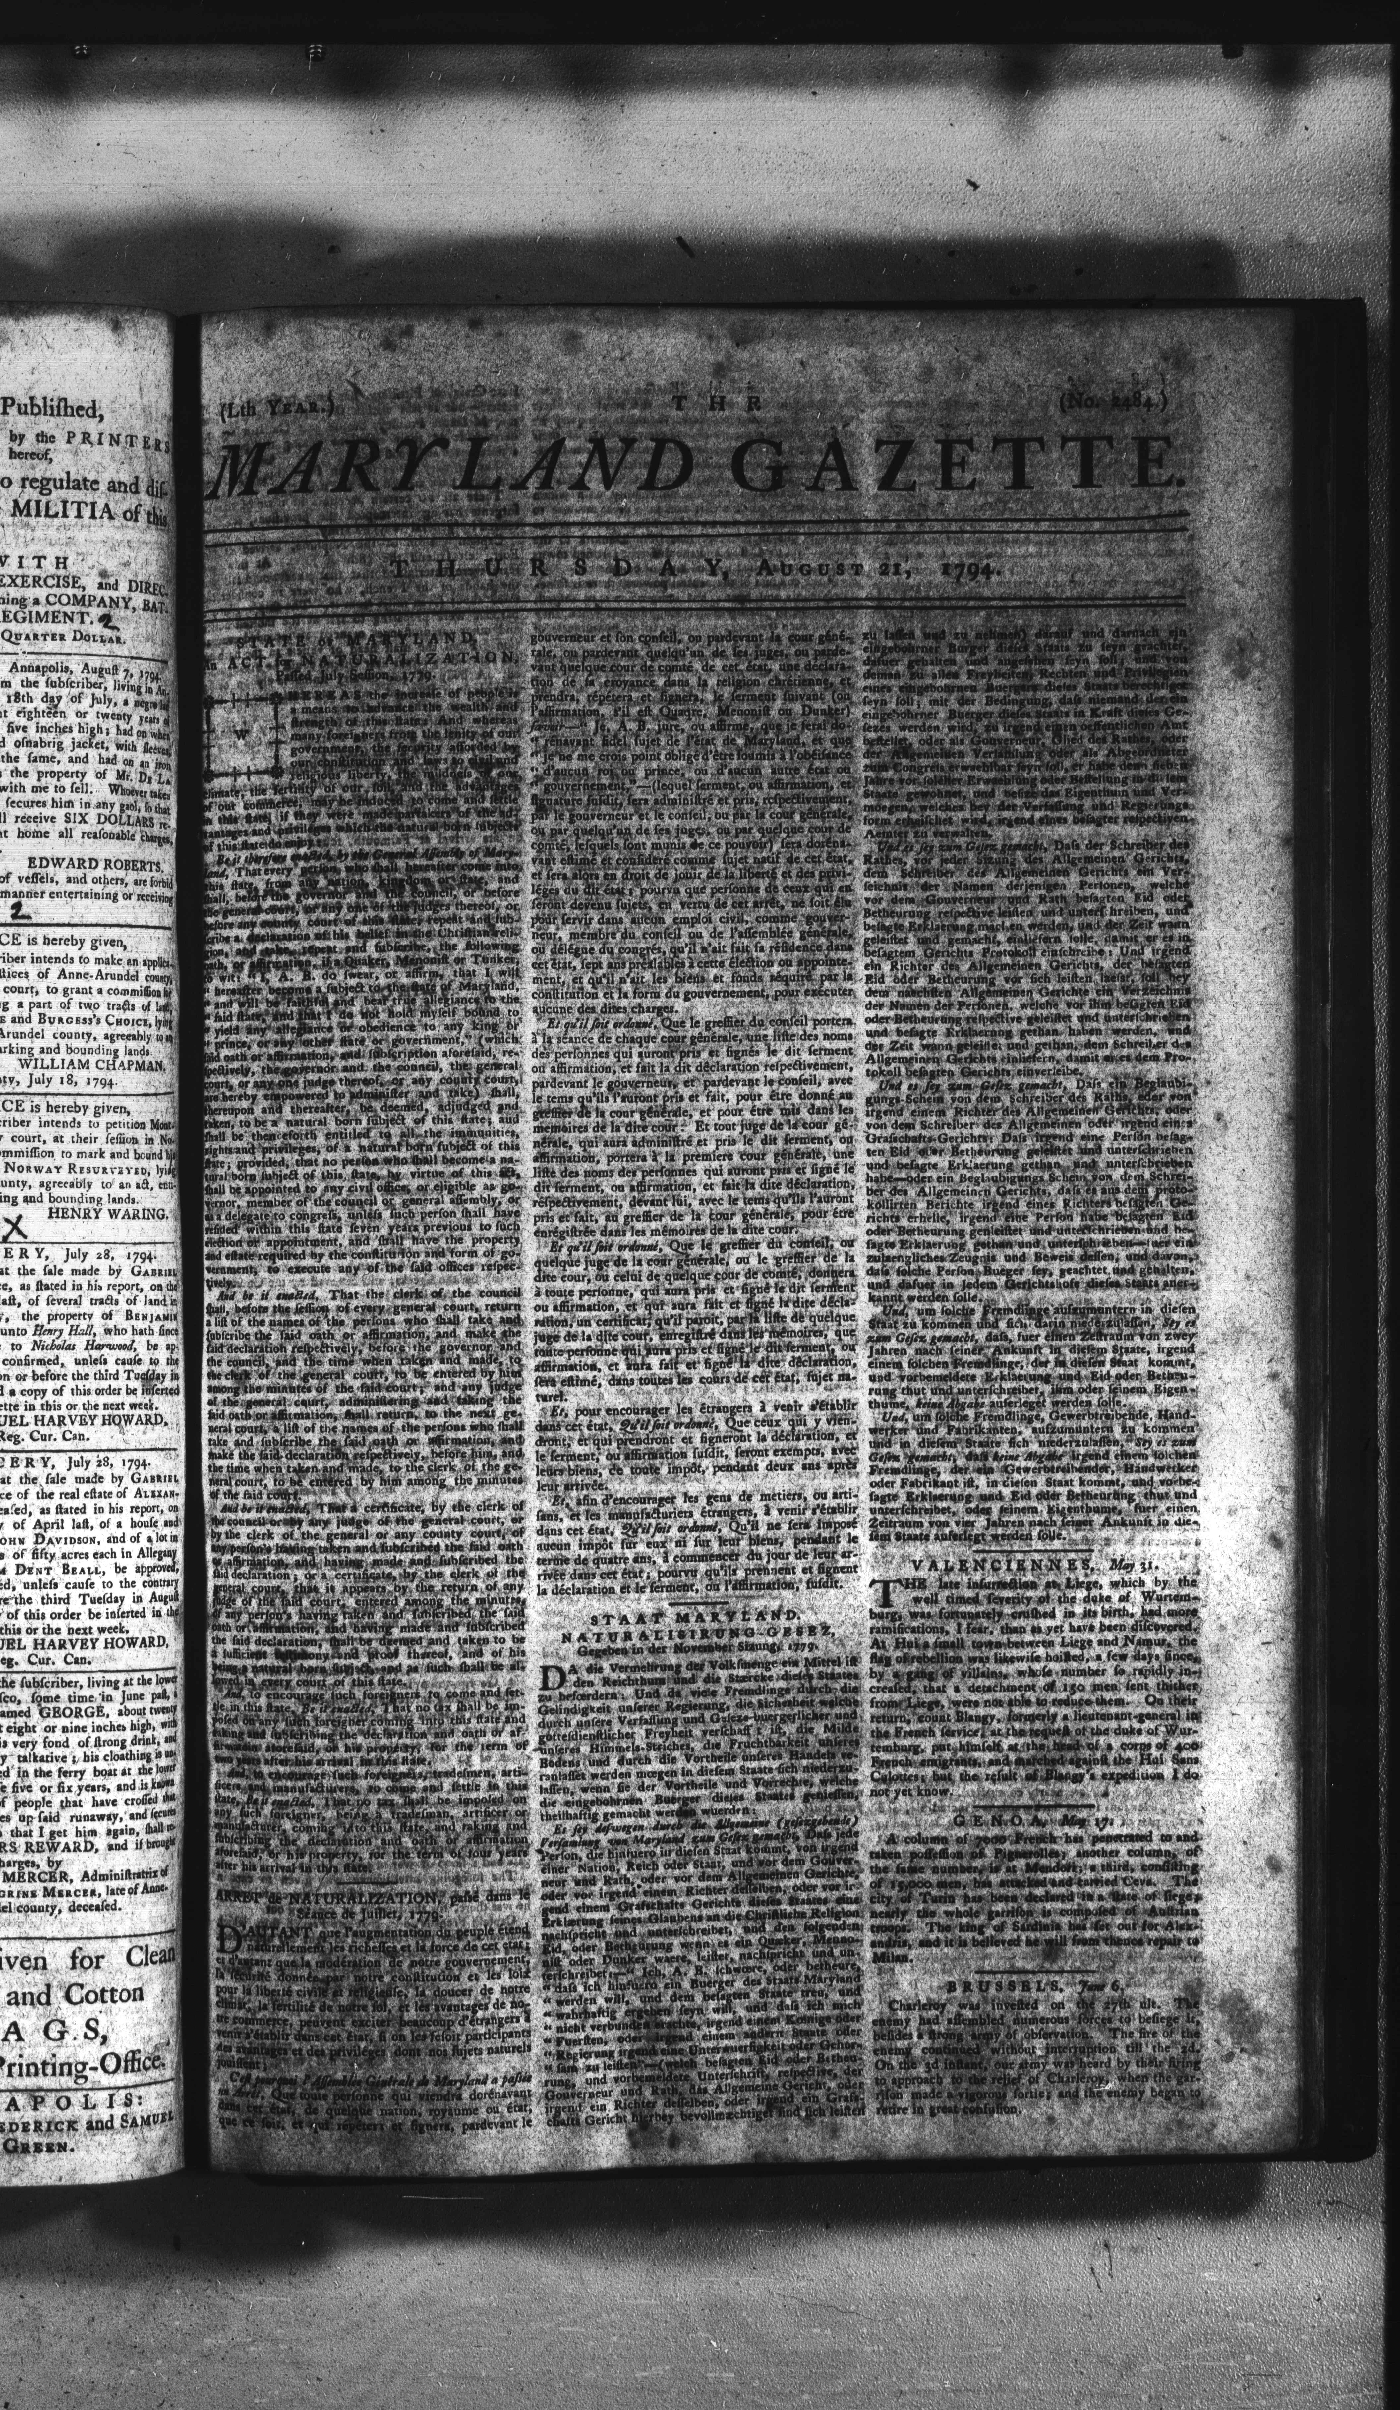 Published,
by the PRINTERS
hereof,
o regulate and dis-
MILITIA of this
WITH
EXERCISE, and DIREC
ning a COMPANY, BAT
EGIMENT. 2
QUARTER DOLLAR.
Annapolis, August 7, 1794.
m the subscriber, living in An
18th day of July, a negro
t eighteen or twenty years of
five inches high; had on when
d osnabrig jacket, with sleeves
the same, and had on an iron
the property of Mr. DE LA
with me to sell. Whoever takes
secures him in any gaol, so that
ll receive SIX DOLLARS re-
t home all reasonable charges,
EDWARD ROBERTS.
of vessels, and others, are forbid
manner entertaining or receiving
2
CE is hereby given,
riber intends to make an applica-
stices of Anne-Arundel county
court, to grant a commission
g a part of two tracts of land,
E and BURGESS'S CHOICE, lying
Arundel county, agreeably to
arking and bounding lands.
WILLIAM CHAPMAN.
ty, July 18, 1794.
CE is hereby given,
criber intends to petition Mont-
y court, at their session in No-
ommission to mark and bound
NORWAY RESURVEYED, lying
unty, agreeably to an act,
ing and bounding lands.
HENRY WARING.
X
ERY, July 28, 1794.
at the sale made by GABRIEL
ce, as stated in his report, on the
last, of several tracts of land
, the property of BENJAMIN
unto Henry Hall, who hath since
to Nicholas Harwood, be ap-
confirmed, unless cause to the
on or before the third Tuesday in
d a copy of this order be inserted
ette in this or the next week.
UEL HARVEY HOWARD,
Reg. Cur. Can.
CERY, July 28, 1794.
at the sale made by GABRIEL
ce of the real estate of ALEXAN-
eased, as stated in his report, on
y of April last, of a house and
OHN DAVIDSON, and of a lot in
s of fifty acres each in Allegany
DENT BEALL, be approved,
ed, unless cause to the contrary
re the third Tuesday in August
of this order be inserted in the
this or the next week.
UEL HARVEY HOWARD,
eg. Cur. Can.
the subscriber, living at the lower
sco, some time in June past,
named GEORGE, about twenty
t eight or nine inches high, with
is very fond of strong drink, and
y talkative; his cloathing is un-
ed in the ferry boat at the lower
e five or six years, and is known
f people that have crossed
es up said runaway, and secures
that I get him again, shall
RS REWARD, and if brought
harges, by
MERCER, Administratrix of
GRINE MERCER, late of Anne-
el county, deceased.
iven for Clean
and Cotton
A G S,
Printing-Office.
APOLIS:
EDERICK and SAMUEL
GREEN.
(Lth YEAR.)
T H E
(No. 2484.)
MARYLAND GAZETTE.
THURSDAY, AUGUST 21, 1794.
STATE of MARYLAND.
An ACT for NATURALIZATION.
Passed July Session, 1779.
WHEREAS the increase of people is
a means to advance the wealth and
strength of this state: And whereas
many foreigners from the lenity of our
government, the security afforded by
our constitution and laws to civil and
religious liberty, the mildness of our
climate, the fertility of our soil, and the advantages
of our commerce, may be induced to come and settle
in this state, if they were made partakers of the ad-
vantages and privileges which the natural born subjects
of this state do enjoy:
Be it therefore enacted, by the General Assembly of Mary-
land, That every person, who shall hereafter come into
this state, from any nation, kingdom or state, and
shall, before the governor and the council, or before
the general court, or any one of the judges thereof, or
before any county court of this state, repeat and sub-
scribe a declaration of his belief in the Christian reli-
gion, and take, repeat and subscribe, the following
oath, or affirmation, if a Quaker, Menonist or Tunker,
to wit: "I, A. B. do swear, or affirm, that I will
" hereafter become a subject to the state of Maryland,
" and will be faithful and bear true allegiance to the
" said state, and that I do not hold myself bound to
" yield any allegiance or obedience to any king or
" prince, or any other state or government," (which
said oath or affirmation, and subscription aforesaid, re-
spectively, the governor and the council, the general
court, or any one judge thereof, or any county court,
are hereby empowered to administer and take) shall,
thereupon and thereafter, be deemed, adjudged and
taken, to be a natural born subject of this state; and
shall be thenceforth entitled to all the immunities,
rights and privileges, of a natural born subject of this
state; provided, that no person who shall become a na-
tural born subject of this state, by virtue of this act,
shall be appointed to any civil office, or eligible as go-
vernor, member of the council or general assembly, or
as a delegate to congress, unless such person shall have
resided within this state seven years previous to such
election or appointment, and shall have the property
and estate required by the constitution and form of go-
vernment, to execute any of the said offices respec-
tively.
And be it enacted, That the clerk of the council
shall, before the session of every general court, return
a list of the names of the persons who shall take and
subscribe the said oath or affirmation, and make the
said declaration respectively, before the governor and
the council, and the time when taken and made, to
the clerk of the general court, to be entered by him
among the minutes of the said court; and any judge
of the general court, administering and taking the
said oath or affirmation, shall return, to the next ge-
neral court, a list of the names of the persons who shall
take and subscribe the said oath or affirmation, and
make the said declaration respectively, before him, and
the time when taken and made, to the clerk of the ge-
neral court, to be entered by him among the minutes
of the said court.
And be it enacted, That a certificate, by the clerk of
the council or by any judge of the general court, or
by the clerk of the general or any county court, of
any person's having taken and subscribed the said oath
or affirmation, and having made and subscribed the
said declaration; or a certificate, by the clerk of the
general court, that it appears, by the return of any
judge of the said court, entered among the minutes,
of any person's having taken and subscribed, the said
oath or affirmation, and having made and subscribed
the said declaration, shall be deemed and taken to be
a sufficient testimony and proof thereof, and of his
being a natural born subject, and as such shall be al-
lowed in every court of this state.
And, to encourage such foreigners to come and set-
tle in this state, Be it enacted, That no tax shall be im-
posed on any such foreigner coming into this state and
taking and subscribing the declaration and oath or af-
firmation aforesaid, or his property, for the term of
two years after his arrival in this state.
And, to encourage such foreigners, tradesmen, arti-
ficers and manufacturers, to come and settle in this
state, Be it enacted, That no tax shall be imposed on
any such foreigner, being a tradesman, artificer or
manufacturer, coming into this state, and taking and
subscribing the declaration and oath or affirmation
aforesaid, or his property, for the term of four years
after his arrival in this state.
ARRET de NATURALIZATION, passé dans le
Séance de Juillet, 1779.
D'AUTANT que l'augmentation du peuple étend
naturellement les richesses et la force de cet état;
et d'autant que la modération de notre gouvernement,
la sécurité donnée par notre constitution et les loix
pour la liberté civile et religieuse, la doucer de notre
climat, la fertilité de notre sol, et les avantages de no-
tre commerce, peuvent exciter beaucoup d'étrangers à
venir s'établir dans cet état, si on les fesoit participants
des avantages et des privilèges, dont nos sujets naturels
jouissent;
C'est pourquoi l'Assemblée Générale de Maryland a passé
un Arrêt, Que toute personne qui viendra dorénavant
dans cet état, de quelque nation, royaume ou état,
que ce soit, et qui répétera et signera, pardevant le
gouverneur et son conseil, ou pardevant la cour géné-
rale, ou pardevant quelqu'un de ses juges, ou parde-
vant quelque cour de comté de cet état, une déclara-
tion de sa croyance dans la religion chrétienne, et
prendra, répétera et signera, le serment suivant (ou
l'affirmation, s'il est Quaqre, Menonist ou Dunker)
savoir—" Je, A. B. jure, ou affirme, que je serai do-
" rénavant fidel sujet de l'état de Maryland, et que
" je ne me crois point obligé d'être soumis à l'obéisance
" d'aucun roi ou prince, ou d'aucun autre état ou
" gouvernement,"—(lequel serment, ou affirmation, et
signature susdit, sera administré et pris, respectivement,
par le gouverneur et le conseil, ou par la cour générale,
ou par quelqu'un de ses juges, ou par quelque cour de
comté, lesquels sont munis de ce pouvoir) sera doréna-
vant estimé et considéré comme sujet natif de cet état,
et sera alors en droit de jouir de la liberté et des privi-
léges du dit état; pourvu que personne de ceux qui en
seront devenu sujets, en vertu de cet arrêt, ne soit élu
pour servir dans aucun emploi civil, comme gouver-
neur, membre du conseil ou de l'assemblée générale,
ou délégue du congrés, qu'il n'ait fait sa résidence dans
cet état, sept ans préalables à cette élection ou appointe-
ment, et qu'il n'ait les biens et fonds réquiré par la
constitution et la form du gouvernement, pour exécuter
aucune des dites charges.
Et qu'il soit ordonné, Que le greffier du conseil portera
à la séance de chaque cour générale, une liste des noms
des personnes qui auront pris et signés le dit serment
ou affirmation, et fait la dit déclaration respectivement,
pardevant le gouverneur, et pardevant le conseil, avec
le tems qu'ils l'auront pris et fait, pour être donné au
greffier de la cour générale, et pour être mis dans les
mémoires de la dite cour: Et tout juge de la cour gé-
nérale, qui aura administré et pris le dit serment, ou
affirmation, portera à la premiere cour générale, une
liste des noms des personnes qui auront pris et signé le
dit serment, ou affirmation, et fait la dite déclaration,
réspectivement, devant lui, avec le tems qu'ils l'auront
pris et fait, au greffier de la cour générale, pour être
enrégistrée dans les mémoires de la dite cour.
Et qu'il soit ordonné, Que le greffier du conseil, ou
quelque juge de la cour générale, ou le greffier de la
dite cour, ou celui de quelque cour de comté, donnera
à toute personne, qui aura pris et signé le dit serment
ou affirmation, et qui aura fait et signé la dite décla-
ration, un certificat; qu'il paroit, par la liste de quelque
juge de la dite cour, enregistré dans les mémoires, que
toute personne qui aura pris et signé le dit serment, ou
affirmation, et aura fait et signé la dite déclaration,
sera estimé, dans toutes les cours de cet état, sujet na-
turel.
Et, pour encourager les étrangers à venir s'établir
dans cet état, Qu'il soit ordonné, Que ceux qui y vien-
dront, et qui prendront et signeront la déclaration, et
le serment, ou affirmation susdit, seront exempts, avec
leurs biens, de toute impôt, pendant deux ans après
leur arrivée.
Et, afin d'encourager les gens de métiers, ou arti-
sans, et les manufacturiers étrangers, à venir s'établir
dans cet état, Qu'il soit ordonné, Qu'il ne sera imposé
aucun impôt sur eux ni sur leur biens, pendant le
terme de quatre ans, à commencer du jour de leur ar-
rivée dans cet état; pourvu qu'ils prennent et signent
la déclaration et le serment, ou l'affirmation, susdit.
STAAT MARYLAND.
NATURALISIRUNG-GESEZ,
Gegeben in der November Sizung, 1779.
DA die Vermehrung der Volksmenge ein Mittel ist
den Reichthum und die Staerke dieses Staates
zu befoerdern: Und da viele Fremdlinge durch die
Gelindigkeit unserer Regierung, die Sicherheit welche
durch unsere Verfassung und Geseze buergerlicher und
gottesdienstlicher Freyheit verschaft ist, die Milde
unseres Himmels-Striches, die Fruchtbarkeit unseres
Bodens und durch die Vortheile unseres Handels ve-
ranlasset werden moegen in diesem Staate sich niederzu-
lassen, wenn sie der Vortheile und Vorrechte, welche
die eingebohrnen Buerger dieses Staates geniessen,
theilhaftig gemacht werden wuerden:
Es sey deswegen durch die Allgemeine (gesezgebende)
Versamlung von Maryland zum Gesez gemacht, Dass jede
Person, die hinfuero in diesen Staat kommt, von irgend
einer Nation, Reich oder Staat, und vor dem Gouver-
neur und Rath, oder vor dem Allgemeinen Gerichte
oder vor irgend einem Richter desselben, oder vor ir-
gend einem Grafschafts Gerichte dieses Staates eine
Erklärung seines Glaubens an die Christliche Religion
nachspricht und unterschreibet, und den folgenden
Eid, oder Betheurung wenn es ein Quaker, Menno-
nist oder Dunker waere, leistet, nachspricht und un-
terschreibet:—" Ich, A. B. schwoere, oder betheure,
" dass ich hinfuero ein Buerger des Staats Maryland
" werden will, und dem besagten Staate treu, und
" wahrhaftig ergeben seyn will, und dass ich mich
" nicht verbunden erachte, irgend einem Koenige oder
" Fuersten, oder irgend einem andern Staate oder
" Regierung irgend eine Unterwuerfigkeit oder Gehor-
" sam zu leisten"—(welch besagten Eid oder Betheu-
rung, und vorbemeldete Unterschrift, respective, der
Gouverneur und Rath, das Allgemeine Gericht, oder
irgent ein Richter desselben, oder irgend ein Graf-
chafts Gericht hierbey bevollmaechtiget sind sich leisten
zu lassen und zu nehmen) darauf und darnach ein
eingebohrner Burger dieses Staats zu seyn geachtet,
dafuer gehalten und angesehen seyn soll; und von
deman zu alles Freyheiten, Rechten und Privilegien
eines eingebohrnen Buergers dieses Staats berechtiget
seyn soll; mit der Bedingung, dass niemand der ein
eingebohrner Buerger dieses Staats in Kraft dieses Ge-
sezes werden wird, zu irgend einem oeffentlichen Amt
bestellet, oder als Gouverneur, Glied des Rathes, oder
der Allgemeinen Versamlung oder als Abgeordneter
zum Congress erwaehlbar seyn soll, er habe denn sieben
Jahre vor solcher Erwaehlung oder Bestellung in diesem
Staate gewohnet, und besize das Eigenthum und Ver-
moegen, welches bey der Verfassung und Regierungs-
form erheischet wird, irgend eines besagter respectiven
Aemter zu verwalten.
Und es sey zum Gesez gemacht, Dass der Schreiber des
Rathes, vor jeder Sizung des Allgemeinen Gerichts,
dem Schreiber des Allgemeinen Gerichts ein Ver-
seichnis der Namen derjenigen Personen, welche
vor dem Gouverneur und Rath besagten Eid oder
Betheurung respective leisten und unterschreiben, und
besagte Erklaerung machen werden, und der Zeit wann
geleistet und gemacht, einliefern solle, damit er es in
besagtem Gerichts Protokoll einschreibe: Und irgend
ein Richter des Allgemeinen Gerichts, der besagten
Eid oder Betheurung vor sich leisten laesst, soll bey
dem naechsten Allgemeinen Gerichte ein Verzeichnis
der Namen der Personen, welche vor ihm besagten Eid
oder Betheurung respective geleistet und unterschrieben
und besagte Erklaerung gethan haben werden, und
der Zeit wann geleistet und gethan, dem Schreiber des
Allgemeinen Gerichts einliefern, damit er es dem Pro-
tokoll besagten Gerichts einverleibe.
Und es sey zum Gesez gemacht, Dass ein Beglaubi-
gungs-Schein von dem Schreiber des Raths, oder von
irgend einem Richter des Allgemeinen Gerichts, oder
von dem Schreiber des Allgemeinen oder irgend eines
Grafschafts-Gerichts: Dass irgend eine Person besag-
ten Eid oder Betheurung geleistet und unterschrieben
und besagte Erklaerung gethan und unterschrieben
habe—oder ein Beglaubigungs Schein von dem Schrei-
ber des Allgemeinen Gerichts, dass es aus dem proto-
kollirten Berichte irgend eines Richters besagten Ge-
richts erhelle, irgend eine Person habe besagten Eid
oder Betheurung geleistet und unterschrieben und be-
sagte Erklaerung gethan und unterschrieben—fuer ein
zulaengliches Zeugnis und Beweis dessen, und davon,
dass solche Person Bueger sey, geachtet und gehalten,
und dafuer in jedem Gerichtshofe dieses Staats aner-
kannt werden solle.
Und, um solche Fremdlinge aufzumuntern in diesen
Staat zu kommen und sich darin niederzulassen, Sey es
zum Gesez gemacht, dass, fuer einen Zeitraum von zwey
Jahren nach seiner Ankunft in diesem Staate, irgend
einem solchen Fremdlinge, der in diesen Staat kommt,
und vorbemeldete Erklaerung und Eid oder Betheu-
rung thut und unterschreibet, ihm oder seinem Eigen-
thume, keine Abgabe auferleget werden solle.
Und, um solche Fremdlinge, Gewerbtreibende, Hand-
werker und Fabrikanten, aufzumuntern zu kommen
und in diesem Staate sich niederzulassen, Sey es zum
Gesez gemacht, dass keine Abgabe irgend einem solchen
Fremdlinge, der ein Gewerbtreibender, Handwerker
oder Fabrikant ist, in diesen Staat kommt, und vorbe-
sagte Erklaerung und Eid oder Betheurung thut und
unterschreibet, oder seinem Eigenthume, fuer einen
Zeitraum von vier Jahren nach seiner Ankunft in die-
sem Staate auferlegt werden solle.
VALENCIENNES, May 31.
THE late insurrection at Liege, which by the
well timed severity of the duke of Wurtem-
burg, was fortunately crushed in its birth, had more
ramifications, I fear, than as yet have been discovered.
At Hui a small town between Liege and Namur, the
flag of rebellion was likewise hoisted, a few days since,
by a gang of villains, whose number so rapidly in-
creased, that a detachment of 150 men sent thither
from Liege, were not able to reduce them. On their
return, count Blangy, formerly a lieutenant-general in
the French service, at the request of the duke of Wur-
temburg, put himself at the head of a corps of 400
French emigrants, and marched against the Hui Sans
Culottes; but the result of Blangy's expedition I do
not yet know.
GENOA, May 17.
A column of 7000 French has penetrated to and
taken possession of Pignerolles; another column, of
the same number, is at Mondovi; a third, consisting
of 15,000 men, has attacked and carried Ceva. The
city of Turin has been declared in a state of siege;
nearly the whole garrison is composed of Austrian
troops. The king of Sardinia has set out for Alex-
andria, and it is believed he will from thence repair to
Milan.
BRUSSELS, June 6.
Charleroy was invested on the 27th ult. The
enemy had assembled numerous forces to besiege it,
besides a strong army of observation. The fire of the
enemy continued without interruption till the 3d.
On the 3d instant, our army was heard by their firing
to approach to the relief of Charleroy, when the gar-
rison made a vigorous sortie; and the enemy began to
retire in great confusion.